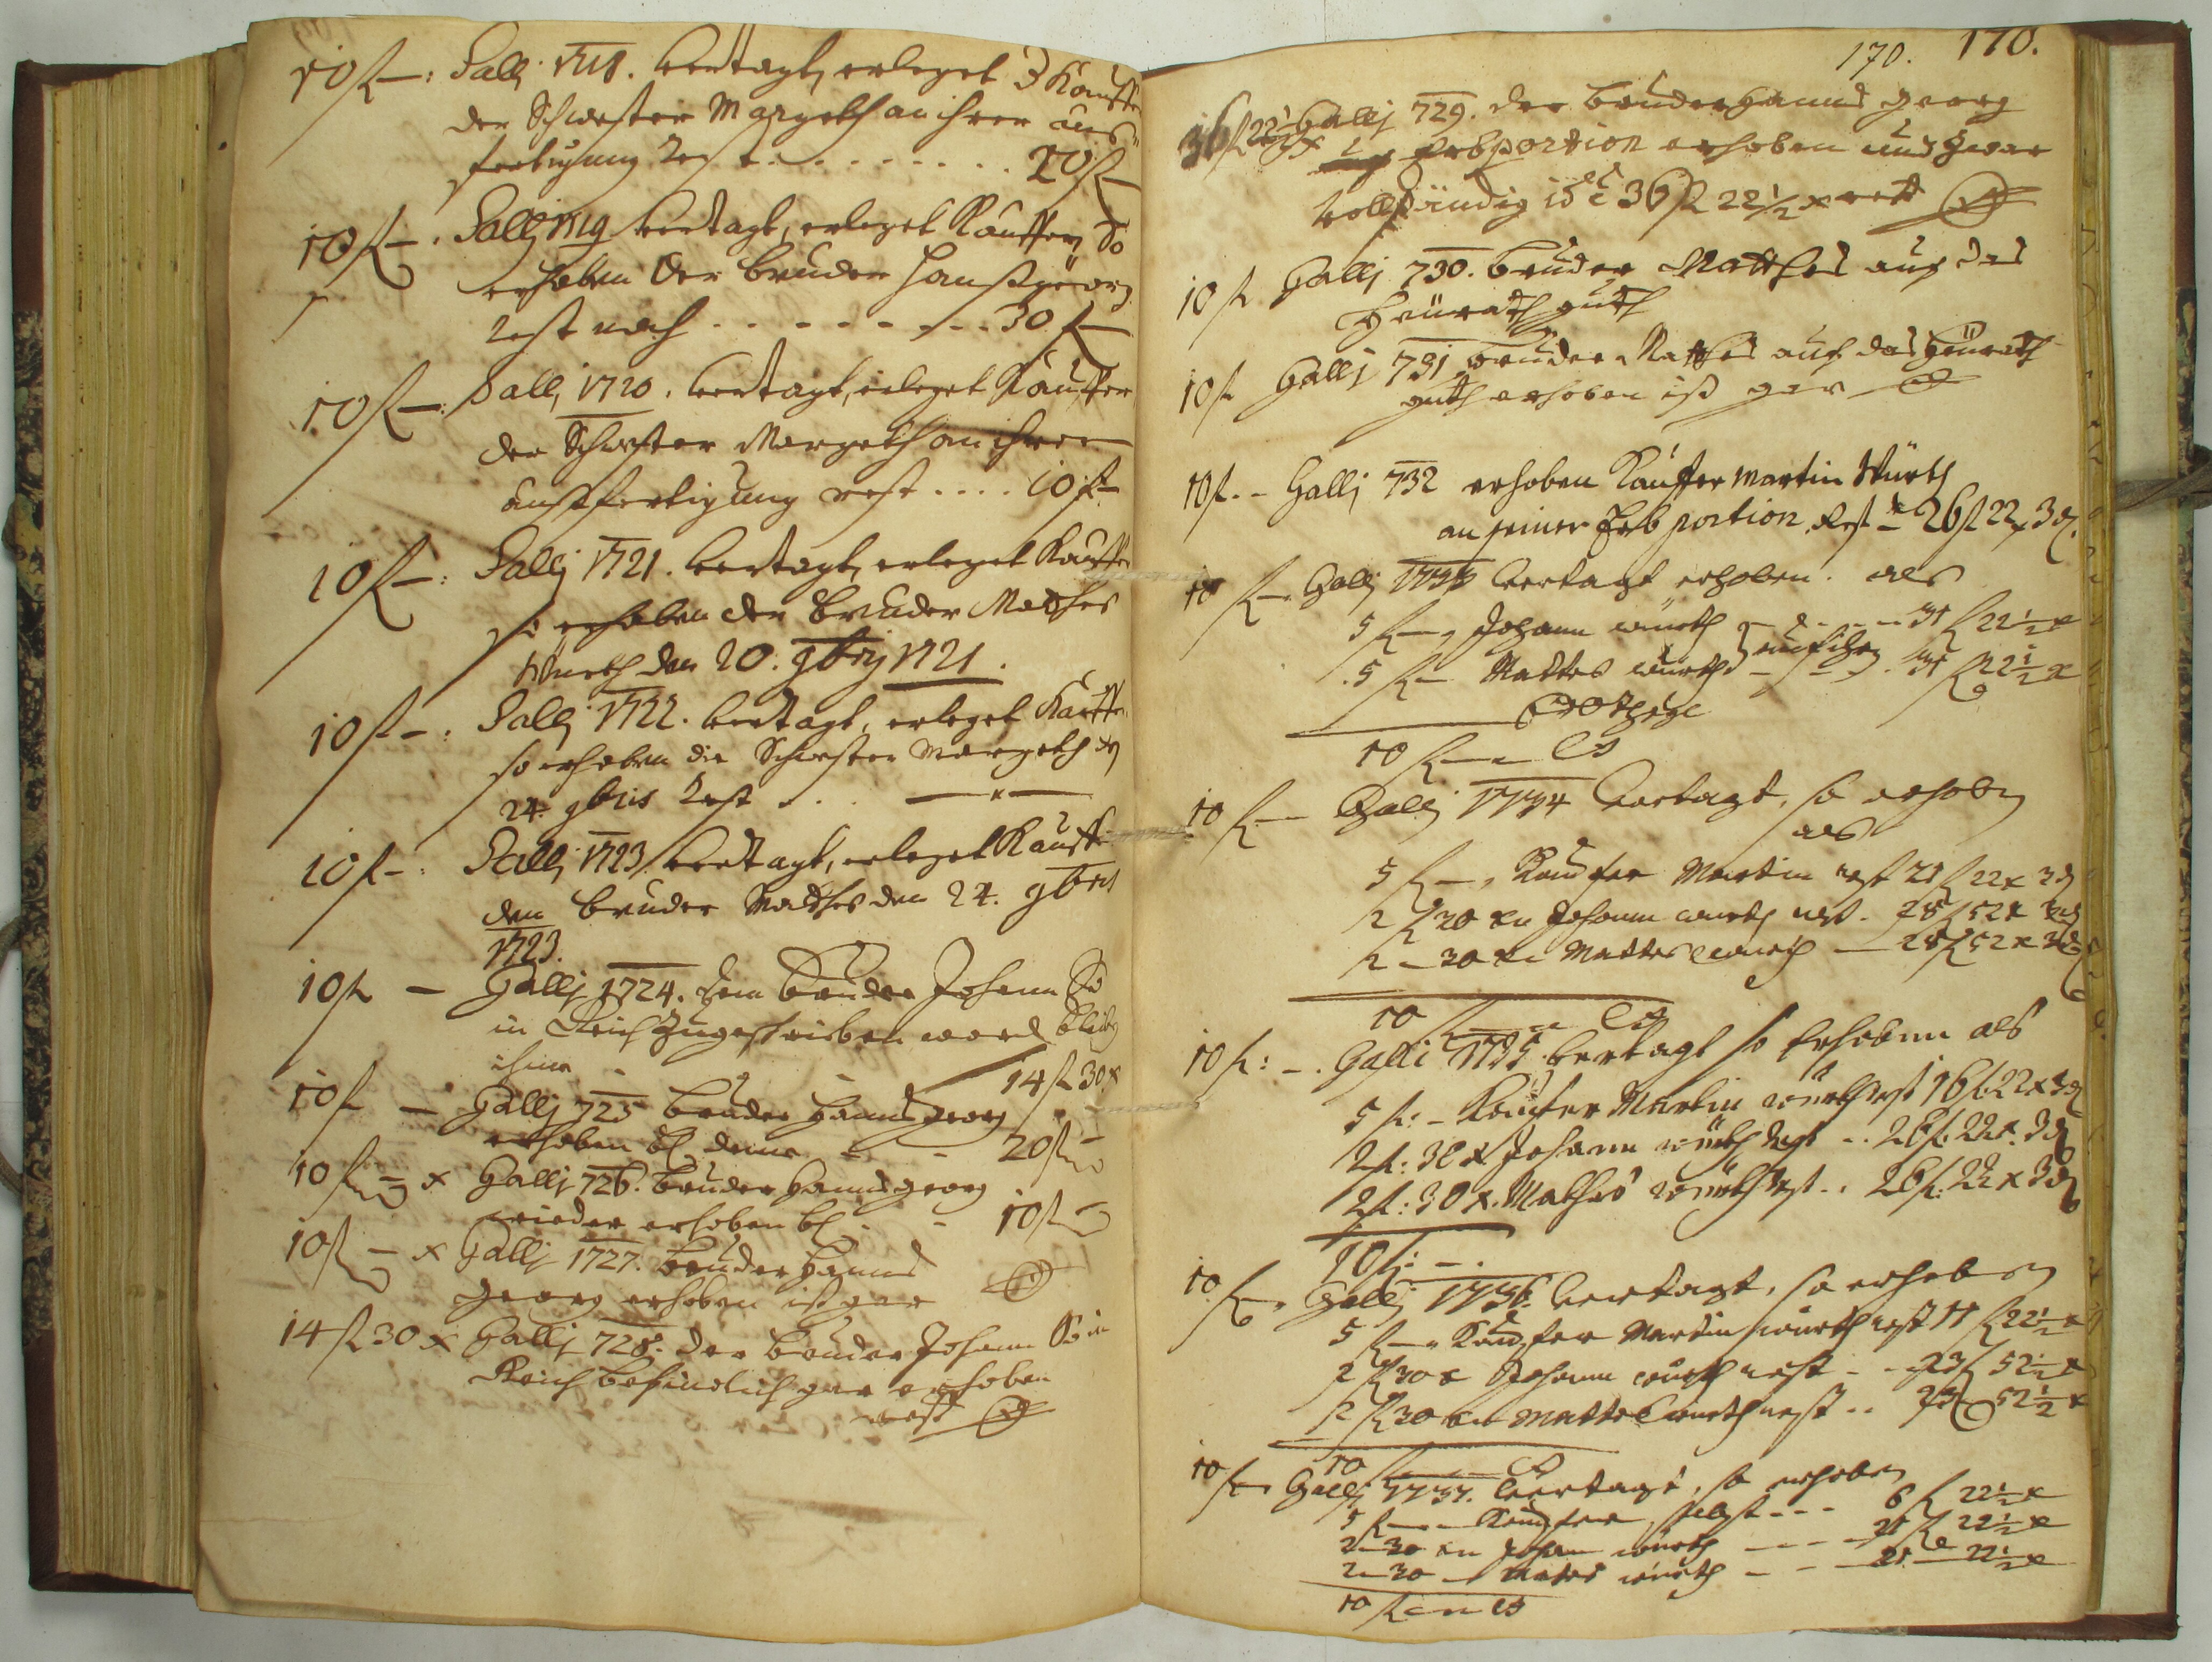 10 fl — : Galli 1718. vertagt, erleget Kauffer
der Schwester Margeth an ihrer aus-
fertigung Rest . . . . . . . 20 fl —
10 fl — . Gallj 1719 vertagt, erleget Kauffer, So
erhoben Der bruder Hanßgeörg
Rest noch . . . . . . . . 30 fl —
10 fl — : Galli 1720. vertagt, erleget Kauffer
der Schwester Margeth an ihrer
außfertigung rest . . . . 10 fl —
10 fl — : Gallj 1721. vertagt, erleget Kauffer
so erhoben der Bruder Mathes
Würth den 20. 9brij 1721.
10 fl — : Gallj 1722. vertagt, erleget Kauffer
so erhoben die Schwester Margeth
24. 9bris Rest . . .
10 fl — : Gallj 1723 vertagt, erleget Kauffer
den bruder Mathes den 24. 9bris
1723.
10 fl — Gallj 1724. dem Bruder Johann So
in Reich zugeschriben word
ihme 14 fl 30 x
10 fl — Gallj 725 bruder Hannsgeorg
erhoben 20 fl
10 fl — x Gallj 726. bruder Hannsgeorg
wieder erhoben 10 fl
10 fl — x Gallj 1727. bruder Hanns
Georg erhoben ist gar
14 fl 30 x Gallj 728. der bruder Johann So in
Reich befindlich gar erhoben
rest
170. 170.
36 fl 22 1/2 x Gallj 729. der bruder Hanns georg
Erbportion erhoben und zwar
vollständig 36 fl 22 1/2 x rest
10 fl Gallj 730. bruder Matthes auf das
Heürath guth
10 fl Gallj 731 bruder Matthes auf das Heürath
guth erhoben ist gar
10 fl. - Gallj 732 erhoben Kauffer Martin Würth
an seiner Erb portion Rest 26 fl 22 x 3 d.
10 fl — Gallj 1733 vertagt erhoben. als
5 fl — Johann würth 31 fl 22 1/2 x
5 fl — Mattes würth 31 fl 22 1/2 x
10 fl —
10 fl — Gallj 1734 vertagt, so erhoben
als
5 fl — , Kauffer Martin rest 21 fl 22 x 3 d
2 fl 30 x Johann würth rest . 28 fl 52 x 3 d
2 — 30 x Mattes würth — 28 fl 52 x 3 d
10 fl
10 fl : — . Galli 1735. vertagt so Erhoben als
5 fl : — Kauffer Martin würth rest 16 fl. 22 x 3 d
2 fl : 30 x Johann würth Rest . . 26 fl. 22 x. 3 d
2 fl : 30 x. Mathes würth Rest . . 26 fl. 22 x 3 d
10 fl : — .
10 fl — , Gallj 1736. vertagt, so erhoben
5 fl — , Kauffer Martin würth rest 11 fl 22 1/2 x
2 fl 30 x Johann würth rest - - 23 fl 52 1/2 x
2 fl 30 x Mattes würth rest . . 23 fl 52 1/2 x
10
10 fl — Gallj 1737. vertagt, so erhoben
5 fl — Kauffer selbst - - - 6 fl 22 1/2 x
2 — 30 x Johann würth - - - 21 fl 22 1/2 x
2 — 30 — Mattes würth - - - 21 — 22 1/2 x
10 fl